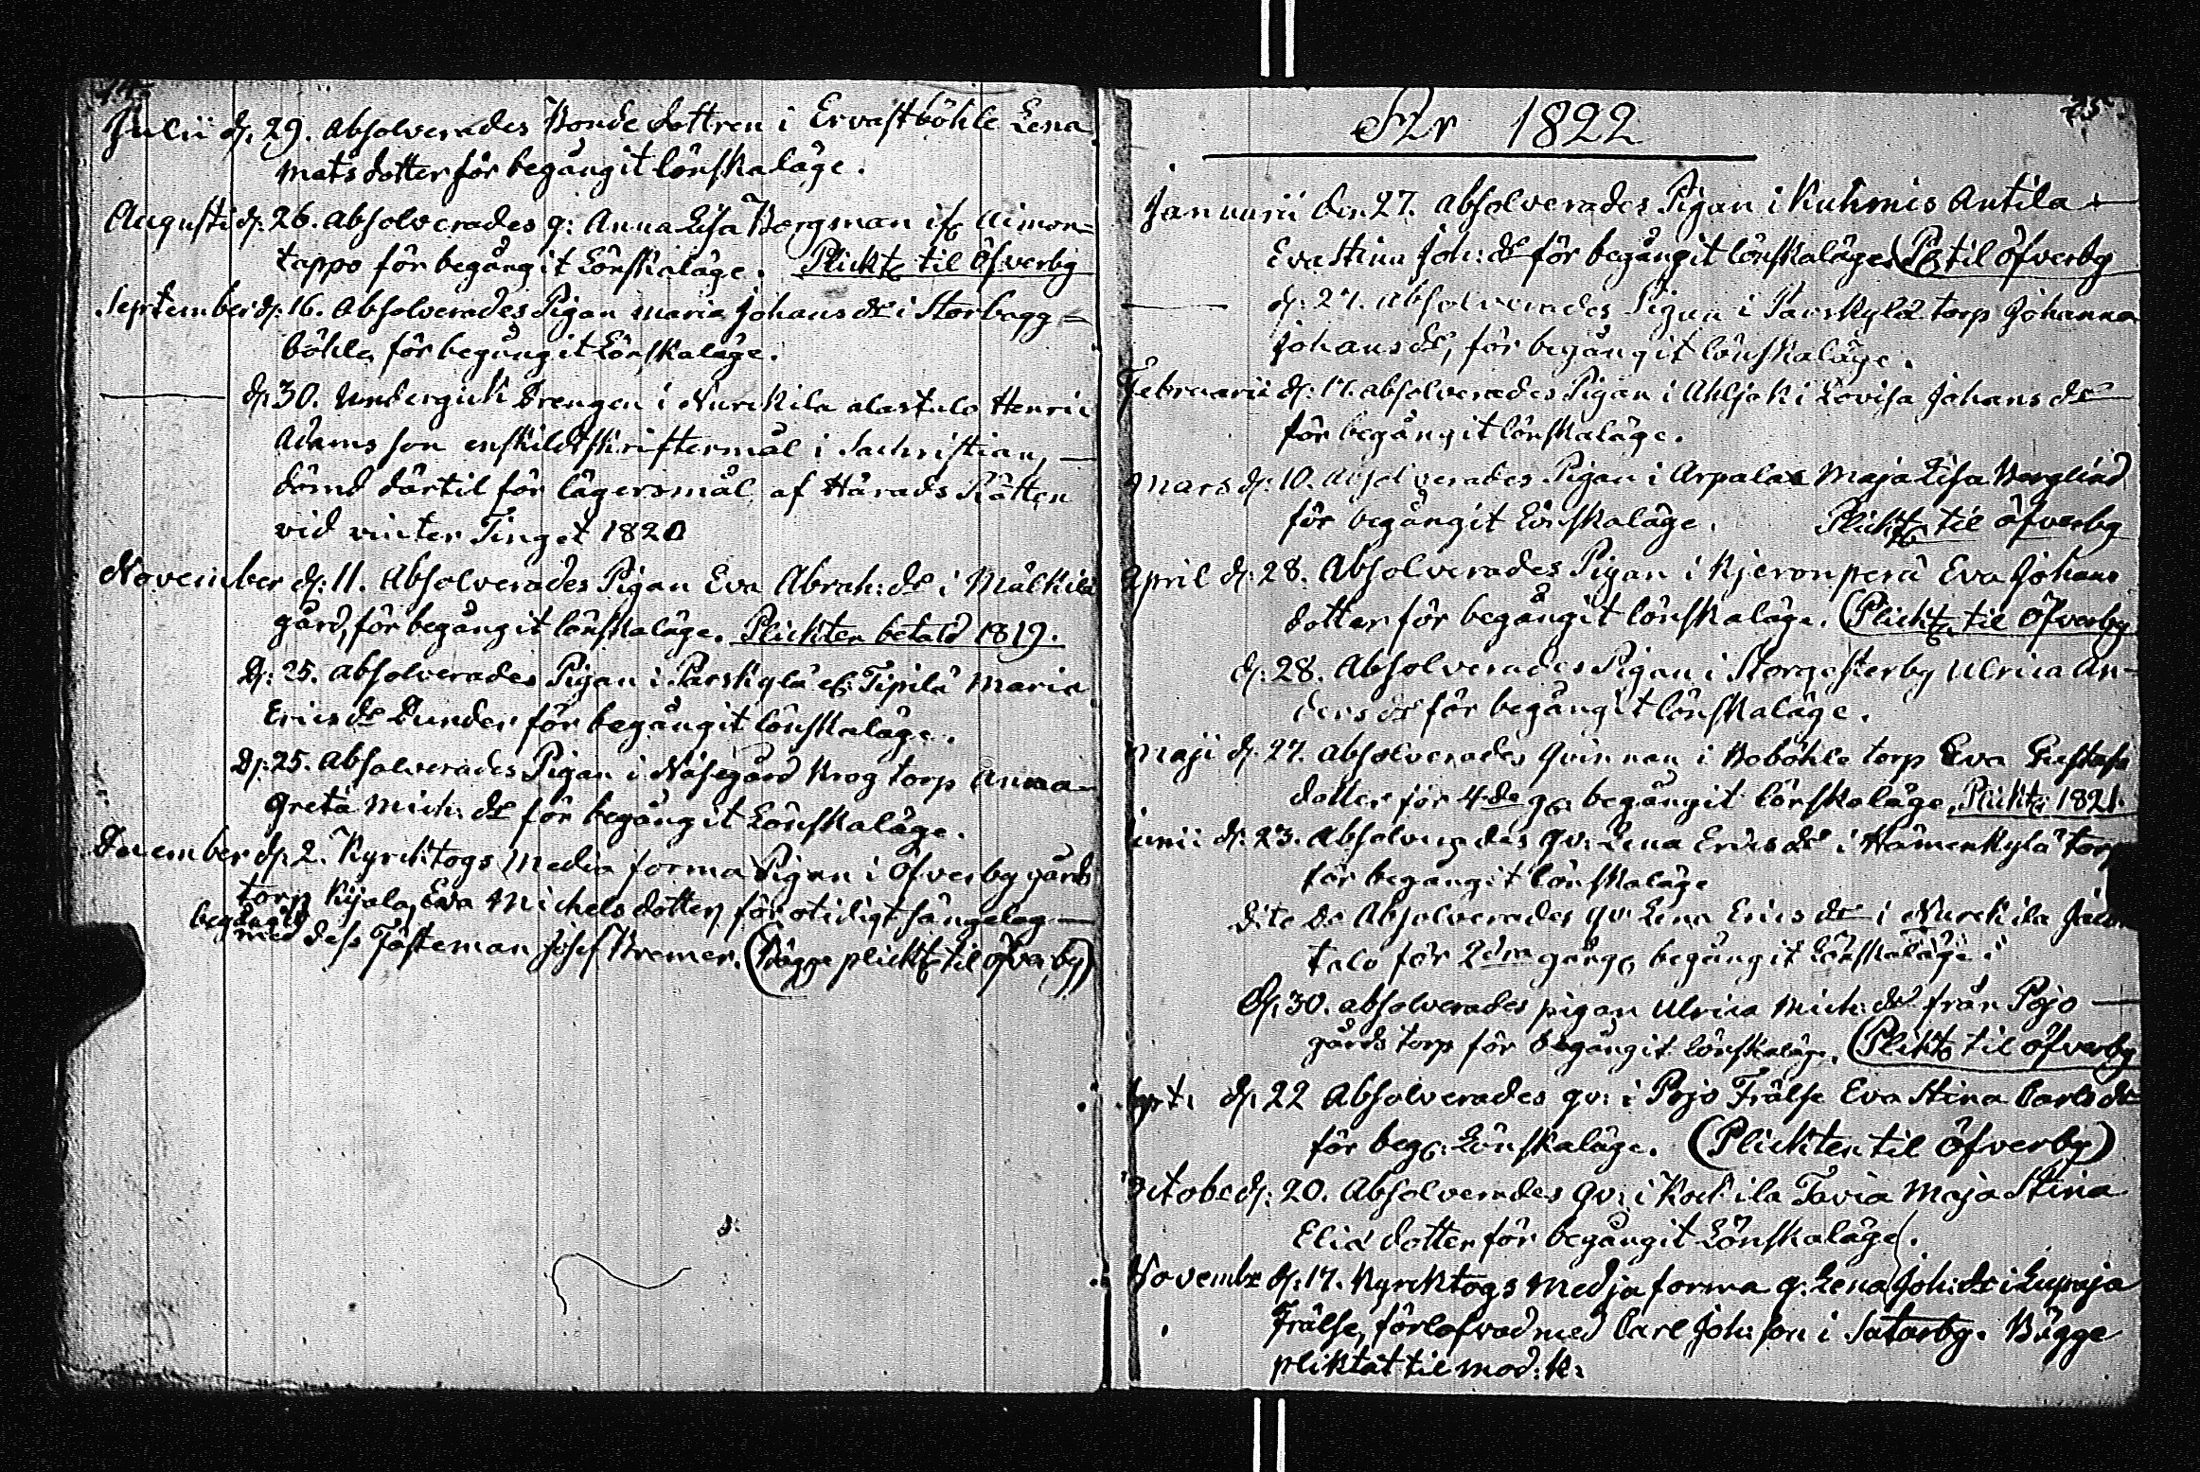 Julii d: 29. Absolverades Bonde dottren i Ervastböhle Lena
Mats dotter för begångit lönskaläge.
Augusti d: 26. Absolverades q: Anna Lisa Bergman
tappo för begångit Lönskaläge. Plickt til Öfverby
September d: 16. Absolverades Pigan Maria Johans dr i Storbagg=
böhle, för begångit Lönskaläge.
d: 30. Undergick Drengen i Nurckila alastalo Henric
Adams son enskildt skriftermål i Sachristian,
dömd därtil för lägersmål, af Härads Rätten
vid vinter Tinget 1820
November d: 11. Absolverades Pigan Eva Abrah: dr i Målkila
gård, för begångit lönskaläge. Plickten betald 1819.
d: 25. Absolverades Pigan i Pärskylä Tipilä Maria
Erics dr Dunder för begångit lönskaläge.
d: 25. Absolverades Pigan i Näsegård Krog torp Anna
Greta Mich: dr för begångit Lönskaläge.
December d: 2. Kyrcktogs Media forma Pigan i Öfverby gårds
torp Kijala, Eva Michels dotter för otidigt sängelag
begångit
med dess Fästeman Josef Bremer. (Bägge plickt til Öfverby)
45
År 1822
Januarii den 27. Absolverades Pigan i Kuhmis Antila
Eva Stina Joh: dr för begångit lönskaläge. (Pl: til Öfverby
d: 27. Absolverades Pigan i Pärskylä torp Johanna
Johans dr, för begångit lönskaläge.
Februarii d: 17. Absolverades Pigan i Ahljoki Lovisa Johans dr
för begångit lönskaläge.
Mars d: 10. Absolverades Pigan i Arpala Maja Lisa Berglind
för begångit Lönskaläge. Plickt til Öfverby
April d: 28. Absolverades Pigan i Kjeronperä Eva Johans
dotter för begångit lönskaläge. (Plickt til Öfverby
d: 28. Absolverades Pigan i Storgesterby Ulrica An=
ders dr för begångit lönskaläge.
Maji d: 27. Absolverades Quinnan i Boböhle torp Eva Gustafs
dotter för 4de g: begångit lönskaläge, Plickt: 1821.
Junii d: 23. Absolverades qv: Lena Erics dr i Hämenkylä torp
för begångit lönskaläge
Dito Do Absolverades qv: Lena Erics dr i Nurckila
talo för 2dra gång, begångit Lönskaläge.
d: 30. absolverades pigan Ulrica Mich: dr från Pojo
gårds torp för begångit lönskaläge. (Plikt til Öfverby
Sept: d: 22 Absolverades qv: i Pojo Frälse Eva Stina Carls dr
för beg: Lönskaläge. (Plickten til Öfverby)
Octobr d: 20. Absolverades qv: i Kockila Tavia Maja Stina
Eliæ dotter för begångit Lönskaläge.
Novembr d: 17. Kyrcktogs Medja forma q: Lena Joh: dr i
Frälse, förlofvad med Carl Joh: son i Satarby. Bägge
pliktat til mod: K: